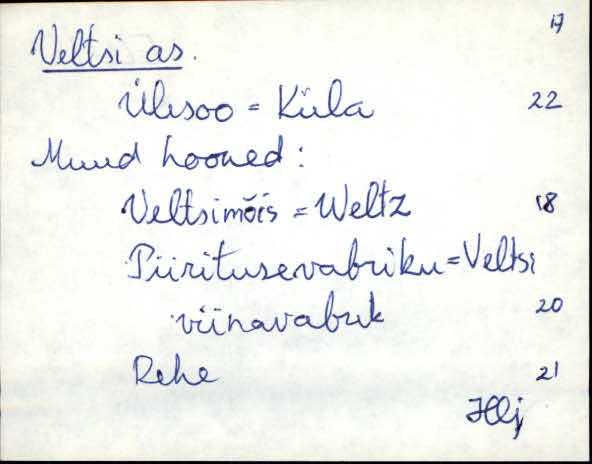 17
Veltsi as.
Ülesoo = Küla 22
Muud hooned:
Veltsimõis = Weltz 18
Piiritusevabriku = Veltsi
viinavabrik 20
Rehe 21